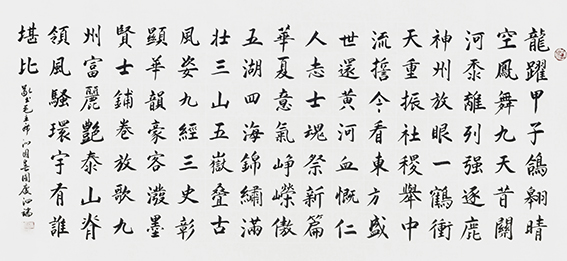 龍躍甲子鴿翱晴
空鳳舞九天昔關
河黍離列强逐鹿
神州放眼一鶴衝
天重振社稷舉中
流誓今看東方盛
世還黄河血慨仁
人志士魂祭新篇
華夏意氣崢嶸傲
五湖四海錦繡滿
壯三山五嶽叠古
風姿九經三史彰
顯華韻豪客潑墨
賢士鋪卷放歌九
州富麗艷泰山脊
領風騷環宇有誰
堪比